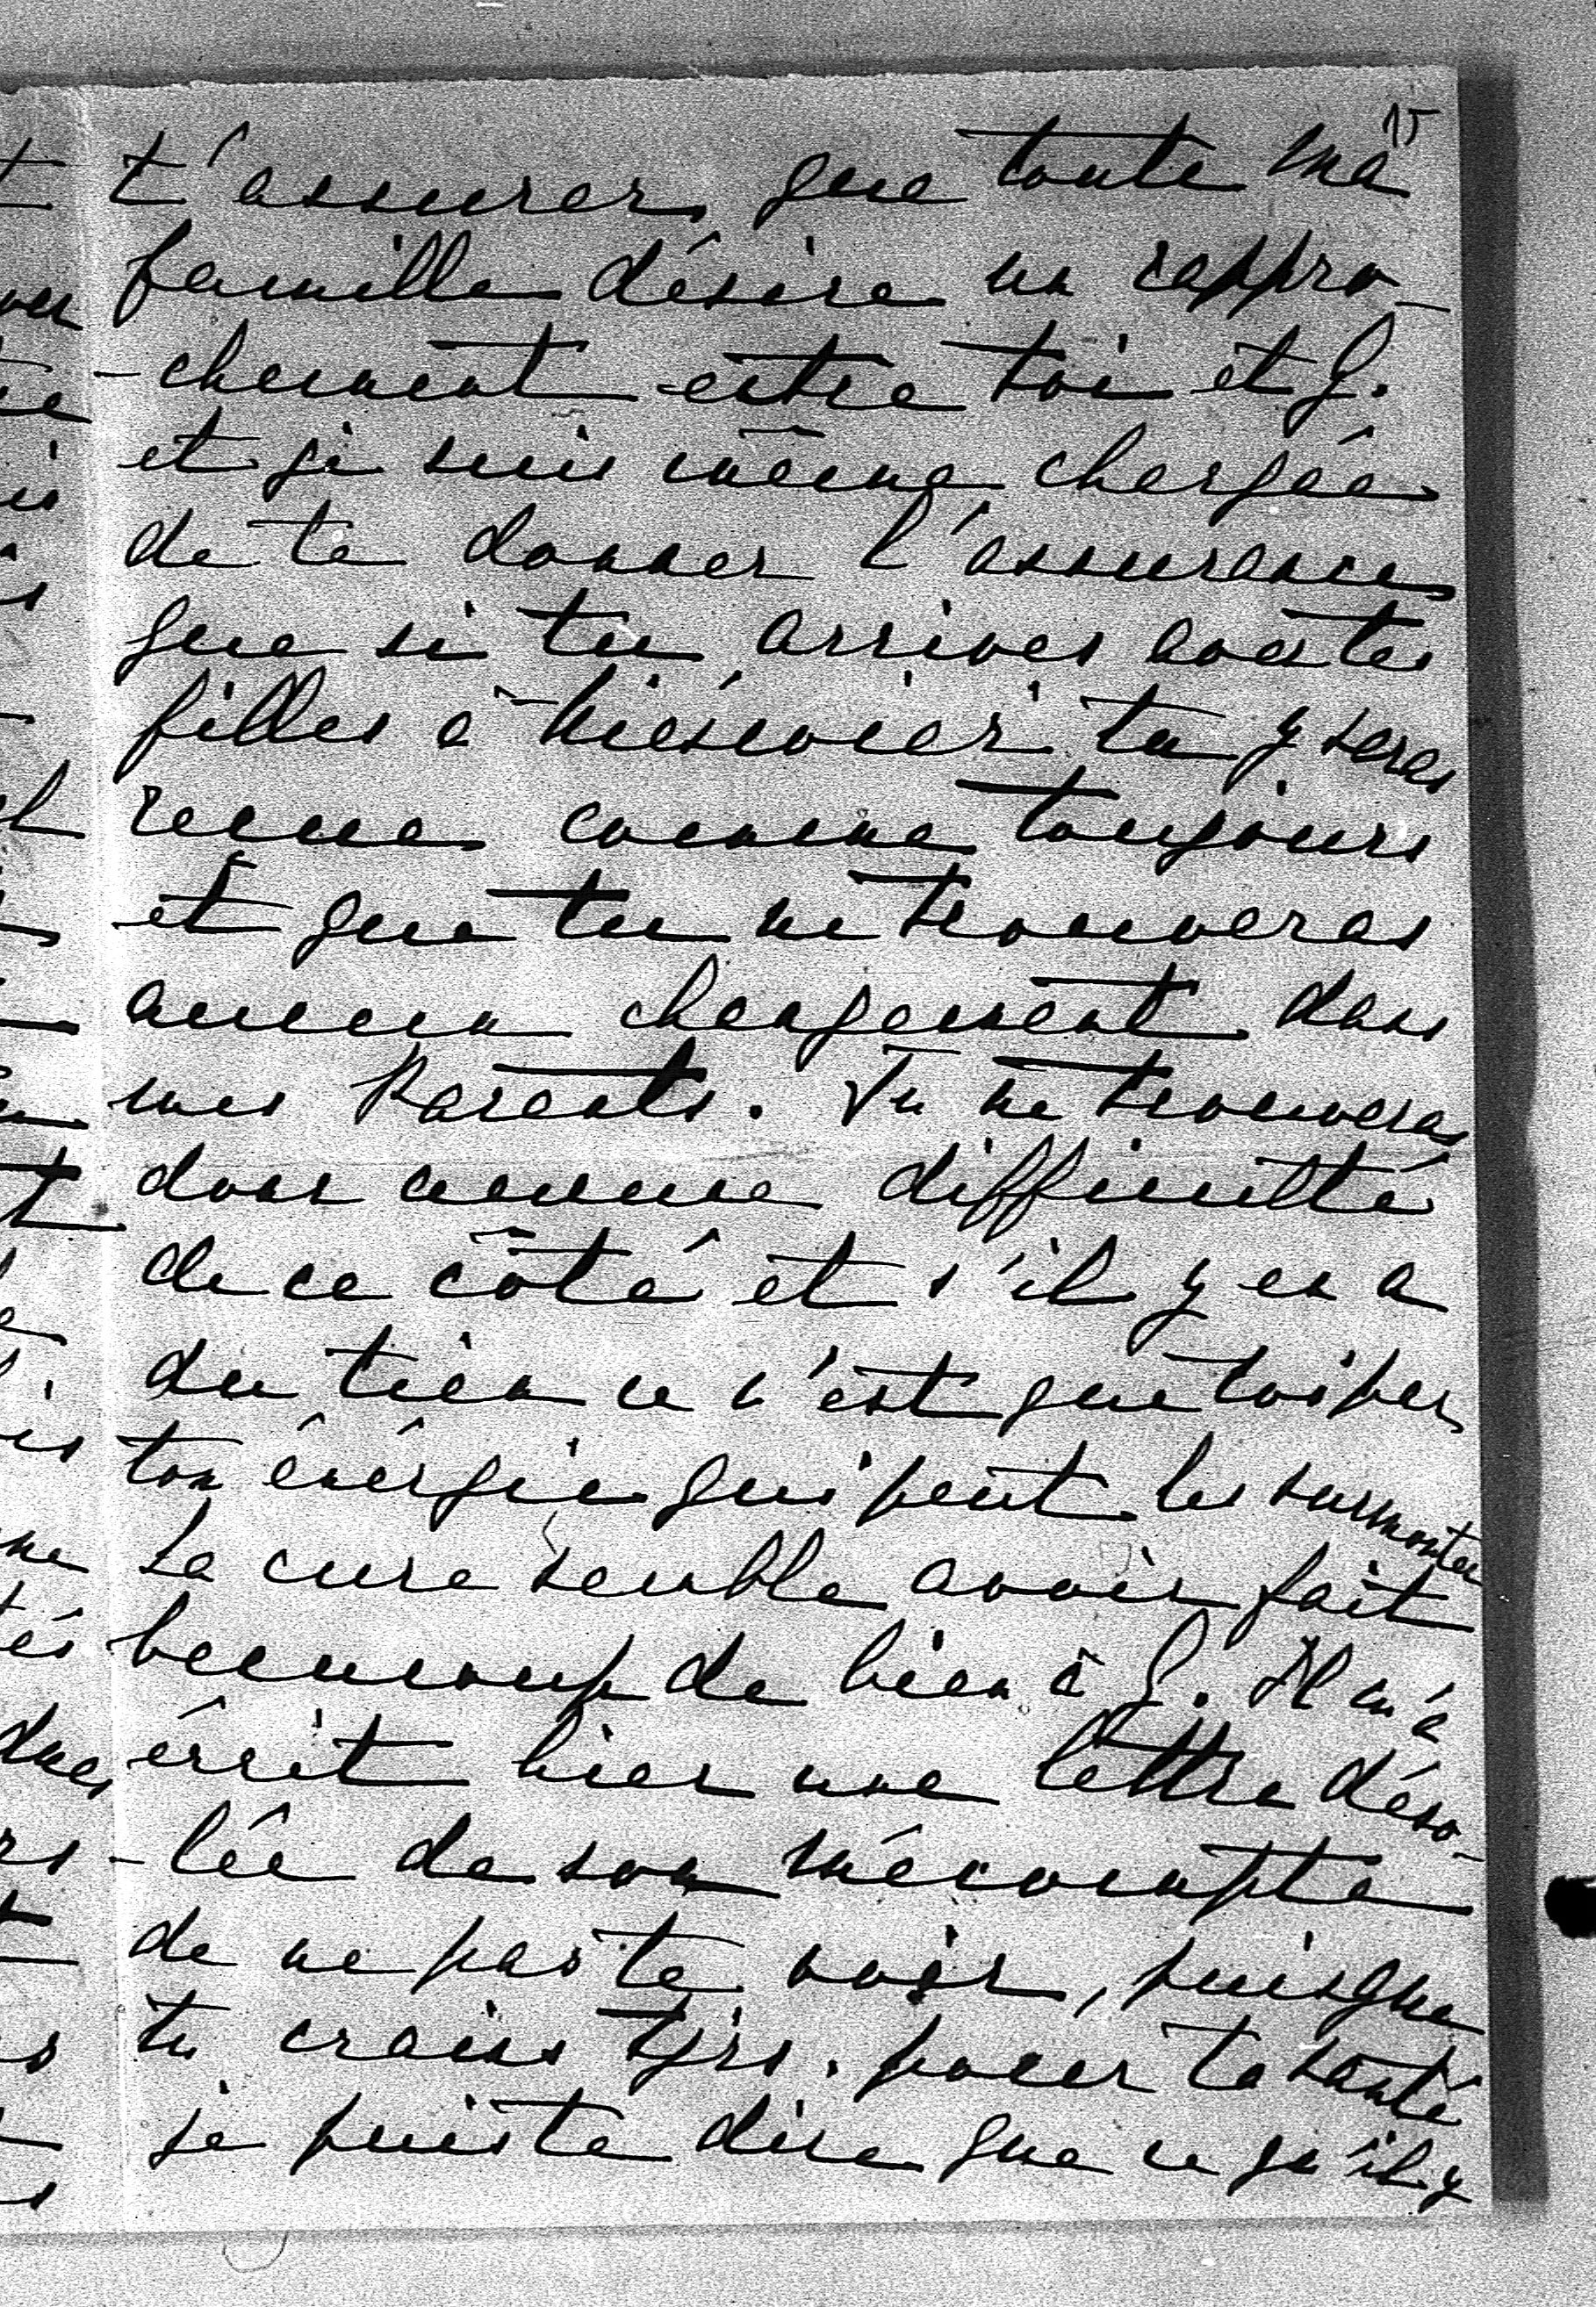 15
t'assurer, que toute ma
famille désire un rappro-
-chement entre toi et G.
et je suis même chargée
de te donner l'assurance
que si tu arrives avec tes
filles à Niesvier tu y seras
recue comme toujours
et que tu ne trouveras
aucun changement dans
mes Parents. Tu ne trouveras
donc aucune difficulté
de ce côté et s'il y en a
du tien ce n'est que toi par
ton énérgie qui peut les surmonter
La cure semble avoir fait
beaucoup de bien à G. Il m'a
écrit hier une lettre déso-
-lée de son mécompte
de ne pas te voir, puisque
tu crains tjrs. pour ta santé
je puis te dire que ce qu'il y